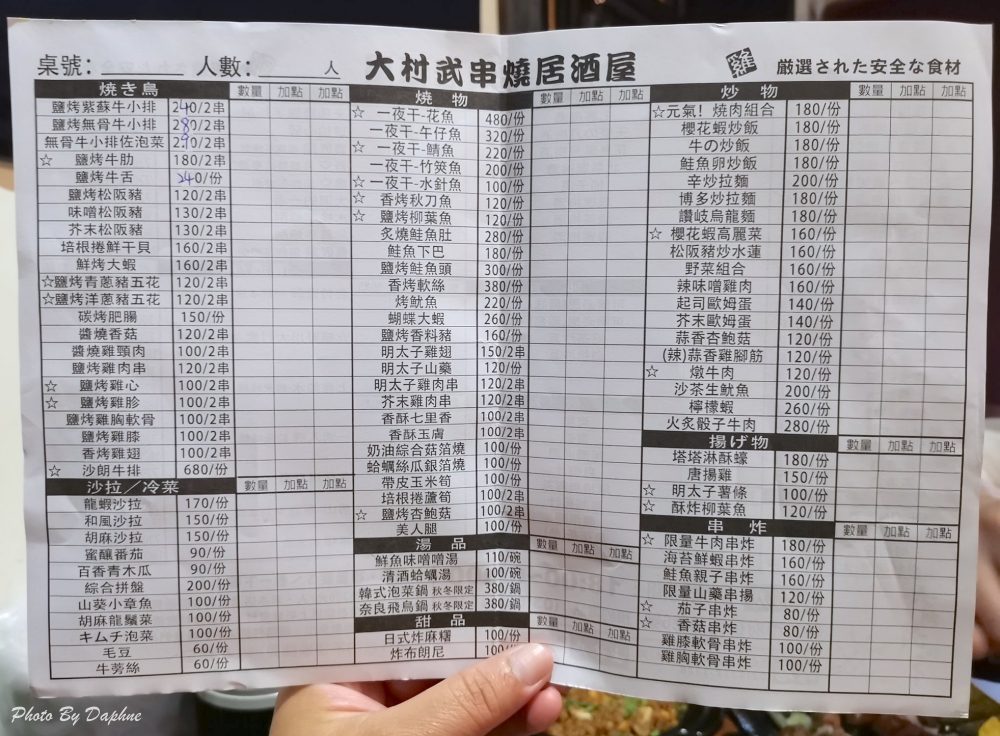 桌號：________ 人數：________人 大村武串燒居酒屋 雞 厳選された安全な食材
焼き鳥 數量 加點 加點
鹽烤紫蘇牛小排 240/2串
鹽烤無骨牛小排 280/2串
無骨牛小排佐泡菜 290/2串
☆ 鹽烤牛肋 180/2串
鹽烤牛舌 240/份
鹽烤松阪豬 120/2串
味噌松阪豬 130/2串
芥末松阪豬 130/2串
培根捲鮮干貝 160/2串
鮮烤大蝦 160/2串
☆鹽烤青蔥豬五花 120/2串
☆鹽烤洋蔥豬五花 120/2串
碳烤肥腸 150/份
醬燒香菇 120/2串
醬燒雞頸肉 100/2串
鹽烤雞肉串 120/2串
☆ 鹽烤雞心 100/2串
☆ 鹽烤雞胗 100/2串
鹽烤雞胸軟骨 100/2串
鹽烤雞膝 100/2串
香烤雞翅 100/2串
☆ 沙朗牛排 680/份
沙拉／冷菜 數量 加點 加點
龍蝦沙拉 170/份
和風沙拉 150/份
胡麻沙拉 150/份
蜜釀番茄 90/份
百香青木瓜 90/份
綜合拼盤 200/份
山葵小章魚 100/份
胡麻龍鬚菜 100/份
キムチ泡菜 100/份
毛豆 60/份
牛蒡絲 60/份
燒物 數量 加點 加點
☆ 一夜干-花魚 480/份
一夜干-午仔魚 320/份
☆ 一夜干-鯖魚 220/份
一夜干-竹筴魚 200/份
☆ 一夜干-水針魚 100/份
☆ 香烤秋刀魚 120/份
☆ 鹽烤柳葉魚 120/份
炙燒鮭魚肚 280/份
鮭魚下巴 180/份
鹽烤鮭魚頭 300/份
香烤軟絲 380/份
烤魷魚 220/份
蝴蝶大蝦 260/份
鹽烤香料豬 160/份
明太子雞翅 150/2串
明太子山藥 120/份
明太子雞肉串 120/2串
芥末雞肉串 120/2串
香酥七里香 100/2串
香酥玉膚 100/2串
奶油綜合菇箔燒 100/份
蛤蠣絲瓜銀箔燒 100/份
帶皮玉米筍 100/份
培根捲蘆筍 100/2串
☆ 鹽烤杏鮑菇 100/2串
美人腿 100/份
湯品 數量 加點 加點
鮮魚味噌噌湯 110/碗
清酒蛤蠣湯 100/碗
韓式泡菜鍋 秋冬限定 380/鍋
奈良飛鳥鍋 秋冬限定 380/鍋
甜品 數量 加點 加點
日式炸麻糬 100/份
炸布朗尼 100/份
炒物 數量 加點 加點
☆元氣！燒肉組合 180/份
櫻花蝦炒飯 180/份
牛の炒飯 180/份
鮭魚卵炒飯 180/份
辛炒拉麵 200/份
博多炒拉麵 180/份
讚岐烏龍麵 180/份
☆ 櫻花蝦高麗菜 160/份
松阪豬炒水蓮 160/份
野菜組合 160/份
辣味噌雞肉 160/份
起司歐姆蛋 140/份
芥末歐姆蛋 140/份
蒜香杏鮑菇 120/份
(辣)蒜香雞腳筋 120/份
☆ 燉牛肉 120/份
沙茶生魷魚 200/份
檸檬蝦 260/份
火炙骰子牛肉 280/份
揚げ物 數量 加點 加點
塔塔淋酥蠔 180/份
唐揚雞 150/份
☆ 明太子薯條 100/份
☆ 酥炸柳葉魚 120/份
串炸 數量 加點 加點
☆ 限量牛肉串炸 180/份
海苔鮮蝦串炸 160/份
鮭魚親子串炸 160/份
限量山藥串揚 120/份
☆ 茄子串炸 80/份
☆ 香菇串炸 80/份
雞膝軟骨串炸 100/份
雞胸軟骨串炸 100/份
Photo By Daphne